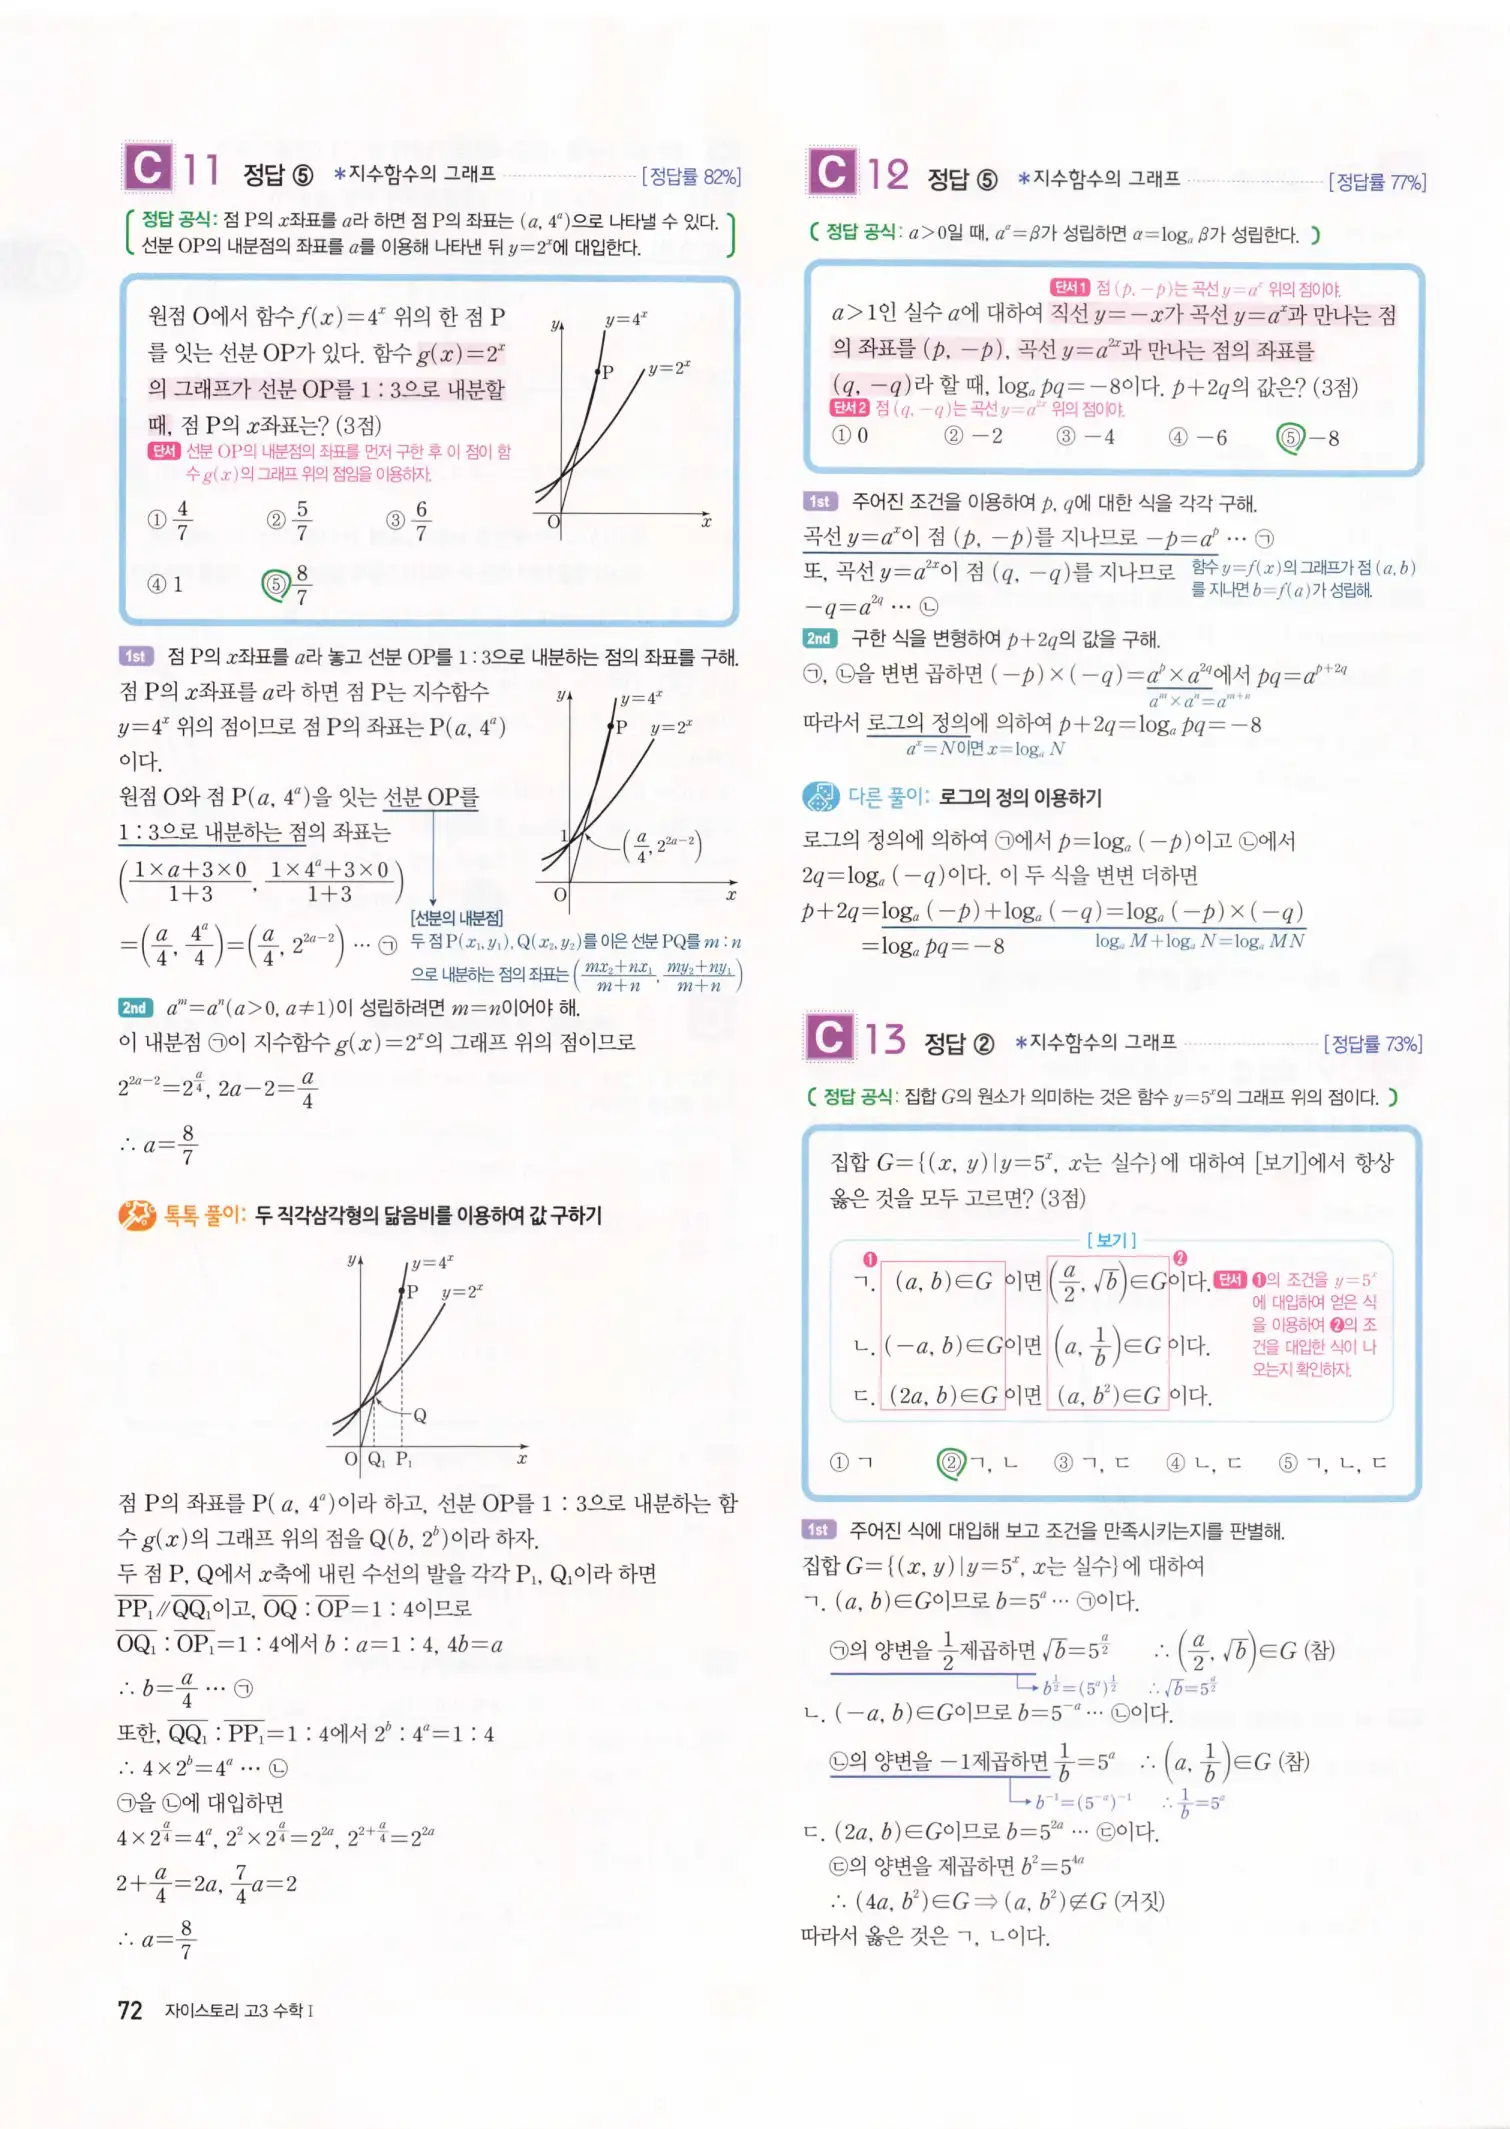 C 11 정답 ⑤ *지수함수의 그래프 [정답률 82%]
정답 공식: 점 P의 x좌표를 a라 하면 점 P의 좌표는 (a, 4ᵃ)으로 나타낼 수 있다.
선분 OP의 내분점의 좌표를 a를 이용해 나타낸 뒤 y=2ˣ에 대입한다.
원점 O에서 함수 f(x)=4ˣ 위의 한 점 P
를 잇는 선분 OP가 있다. 함수 g(x)=2ˣ
의 그래프가 선분 OP를 1 : 3으로 내분할
때, 점 P의 x좌표는? (3점)
단서 선분 OP의 내분점의 좌표를 먼저 구한 후 이 점이 함
수 g(x)의 그래프 위의 점임을 이용하자.
y y=4ˣ
P y=2ˣ
O x
① 4/7 ② 5/7 ③ 6/7
④ 1 ⑤ 8/7
1st 점 P의 x좌표를 a라 놓고 선분 OP를 1 : 3으로 내분하는 점의 좌표를 구해.
점 P의 x좌표를 a라 하면 점 P는 지수함수
y=4ˣ 위의 점이므로 점 P의 좌표는 P(a, 4ᵃ)
이다.
원점 O와 점 P(a, 4ᵃ)을 잇는 선분 OP를
1 : 3으로 내분하는 점의 좌표는
((1×a+3×0)/(1+3), (1×4ᵃ+3×0)/(1+3))
=(a/4, 4ᵃ/4)=(a/4, 2^(2a-2)) ⋯ ㉠
y y=4ˣ
P y=2ˣ
1 (a/4, 2^(2a-2))
O x
[선분의 내분점]
두 점 P(x₁, y₁), Q(x₂, y₂)를 이은 선분 PQ를 m : n
으로 내분하는 점의 좌표는 ((mx₂+nx₁)/(m+n), (my₂+ny₁)/(m+n))
2nd aᵐ=aⁿ(a>0, a≠1)이 성립하려면 m=n이어야 해.
이 내분점 ㉠이 지수함수 g(x)=2ˣ의 그래프 위의 점이므로
2^(2a-2)=2^(a/4), 2a-2=a/4
∴ a=8/7
톡톡 풀이: 두 직각삼각형의 닮음비를 이용하여 값 구하기
y y=4ˣ
P y=2ˣ
Q
O Q₁ P₁ x
점 P의 좌표를 P( a, 4ᵃ)이라 하고, 선분 OP를 1 : 3으로 내분하는 함
수 g(x)의 그래프 위의 점을 Q(b, 2ᵇ)이라 하자.
두 점 P, Q에서 x축에 내린 수선의 발을 각각 P₁, Q₁이라 하면
PP₁//QQ₁이고, OQ : OP=1 : 4이므로
OQ₁ : OP₁=1 : 4에서 b : a=1 : 4, 4b=a
∴ b=a/4 ⋯ ㉠
또한, QQ₁ : PP₁=1 : 4에서 2ᵇ : 4ᵃ=1 : 4
∴ 4×2ᵇ=4ᵃ ⋯ ㉡
㉠을 ㉡에 대입하면
4×2^(a/4)=4ᵃ, 2²×2^(a/4)=2^(2a), 2^(2+a/4)=2^(2a)
2+a/4=2a, 7/4a=2
∴ a=8/7
72 자이스토리 고3 수학 I
C 12 정답 ⑤ *지수함수의 그래프 [정답률 77%]
( 정답 공식: a>0일 때, aᵅ=β가 성립하면 α=logₐ β가 성립한다. )
단서1 점 (p, -p)는 곡선 y=aˣ 위의 점이야.
a>1인 실수 a에 대하여 직선 y=-x가 곡선 y=aˣ과 만나는 점
의 좌표를 (p, -p), 곡선 y=a^(2x)과 만나는 점의 좌표를
(q, -q)라 할 때, logₐ pq=-8이다. p+2q의 값은? (3점)
단서2 점 (q, -q)는 곡선 y=a^(2x) 위의 점이야.
① 0 ② -2 ③ -4 ④ -6 ⑤ -8
1st 주어진 조건을 이용하여 p, q에 대한 식을 각각 구해.
곡선 y=aˣ이 점 (p, -p)를 지나므로 -p=aᵖ ⋯ ㉠
또, 곡선 y=a^(2x)이 점 (q, -q)를 지나므로
-q=a^(2q) ⋯ ㉡
함수 y=f(x)의 그래프가 점 (a, b)
를 지나면 b=f(a)가 성립해.
2nd 구한 식을 변형하여 p+2q의 값을 구해.
㉠, ㉡을 변변 곱하면 (-p)×(-q)=aᵖ×a^(2q)에서 pq=a^(p+2q)
aᵐ×aⁿ=a^(m+n)
따라서 로그의 정의에 의하여 p+2q=logₐ pq=-8
aˣ=N이면 x=logₐ N
다른 풀이: 로그의 정의 이용하기
로그의 정의에 의하여 ㉠에서 p=logₐ (-p)이고 ㉡에서
2q=logₐ (-q)이다. 이 두 식을 변변 더하면
p+2q=logₐ (-p)+logₐ (-q)=logₐ (-p)×(-q)
=logₐ pq=-8 logₐ M+logₐ N=logₐ MN
C 13 정답 ② *지수함수의 그래프 [정답률 73%]
( 정답 공식: 집합 G의 원소가 의미하는 것은 함수 y=5ˣ의 그래프 위의 점이다. )
집합 G={(x, y)|y=5ˣ, x는 실수}에 대하여 [보기]에서 항상
옳은 것을 모두 고르면? (3점)
[ 보기 ]
❶ ❷
ㄱ. (a, b)∈G 이면 (a/2, √b)∈G이다.
ㄴ. (-a, b)∈G이면 (a, 1/b)∈G 이다.
ㄷ. (2a, b)∈G 이면 (a, b²)∈G 이다.
단서 ❶의 조건을 y=5ˣ
에 대입하여 얻은 식
을 이용하여 ❷의 조
건을 대입한 식이 나
오는지 확인하자.
① ㄱ ② ㄱ, ㄴ ③ ㄱ, ㄷ ④ ㄴ, ㄷ ⑤ ㄱ, ㄴ, ㄷ
1st 주어진 식에 대입해 보고 조건을 만족시키는지를 판별해.
집합 G={(x, y)|y=5ˣ, x는 실수}에 대하여
ㄱ. (a, b)∈G이므로 b=5ᵃ ⋯ ㉠이다.
㉠의 양변을 1/2제곱하면 √b=5^(a/2) ∴ (a/2, √b)∈G (참)
b^(1/2)=(5ᵃ)^(1/2) ∴ √b=5^(a/2)
ㄴ. (-a, b)∈G이므로 b=5⁻ᵃ ⋯ ㉡이다.
㉡의 양변을 -1제곱하면 1/b=5ᵃ ∴ (a, 1/b)∈G (참)
b⁻¹=(5⁻ᵃ)⁻¹ ∴ 1/b=5ᵃ
ㄷ. (2a, b)∈G이므로 b=5^(2a) ⋯ ㉢이다.
㉢의 양변을 제곱하면 b²=5^(4a)
∴ (4a, b²)∈G ⟹ (a, b²)∉G (거짓)
따라서 옳은 것은 ㄱ, ㄴ이다.